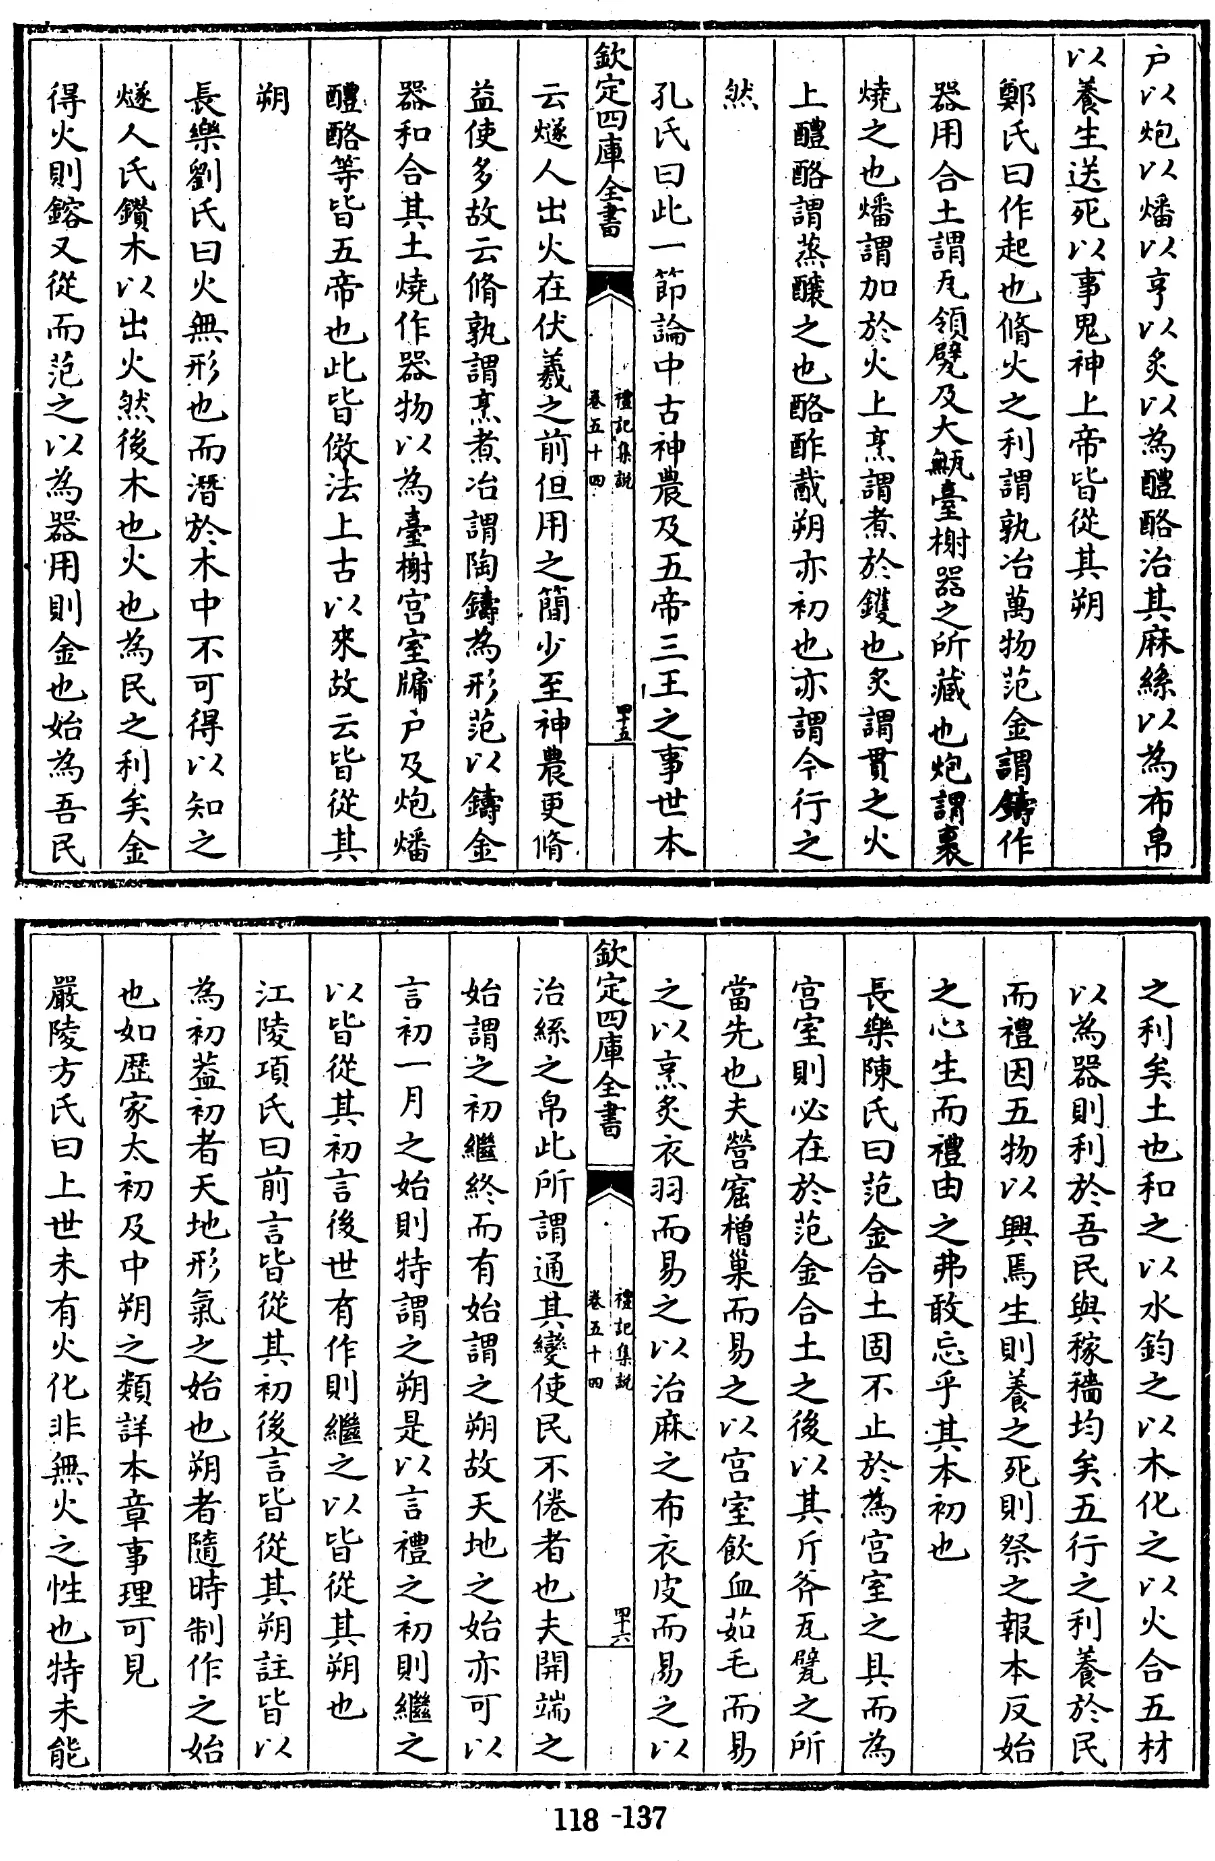 户以炮以燔以亨以炙以為醴酪治其麻絲以為布帛
以養生送死以事鬼神上帝皆從其朔
鄭氏曰作起也脩火之利謂孰冶萬物范金謂鑄作
器用合土謂瓦瓴甓及大甒臺榭器之所藏也炮謂裹
燒之也燔謂加於火上烹謂煮於鑊也炙謂貫之火
上醴酪謂蒸釀之也酪酢胾朔亦初也亦謂今行之
然
孔氏曰此一節論中古神農及五帝三王之事世本
欽定四庫全書
禮記集說
卷五十四
四十五
云燧人出火在伏羲之前但用之簡少至神農更脩
益使多故云脩孰謂烹煮冶謂陶鑄為形范以鑄金
器和合其土燒作器物以為臺榭宫室牖户及炮燔
醴酪等皆五帝也此皆倣法上古以來故云皆從其
朔
長樂劉氏曰火無形也而潛於木中不可得以知之
燧人氏鑽木以出火然後木也火也為民之利矣金
得火則鎔又從而范之以為器用則金也始為吾民
之利矣土也和之以水鈞之以木化之以火合五材
以為器則利於吾民與稼穡均矣五行之利養於民
而禮因五物以興焉生則養之死則祭之報本反始
之心生而禮由之弗敢忘乎其本初也
長樂陳氏曰范金合土固不止於為宫室之具而為
宫室則必在於范金合土之後以其斤斧瓦甓之所
當先也夫營窟橧巢而易之以宫室飲血茹毛而易
之以烹炙衣羽而易之以治麻之布衣皮而易之以
欽定四庫全書
禮記集說
卷五十四
四十六
治絲之帛此所謂通其變使民不倦者也夫開端之
始謂之初繼終而有始謂之朔故天地之始亦可以
言初一月之始則特謂之朔是以言禮之初則繼之
以皆從其初言後世有作則繼之以皆從其朔也
江陵項氏曰前言皆從其初後言皆從其朔註皆以
為初葢初者天地形氣之始也朔者隨時制作之始
也如歴家太初及中朔之類詳本章事理可見
嚴陵方氏曰上世未有火化非無火之性也特未能
118-137